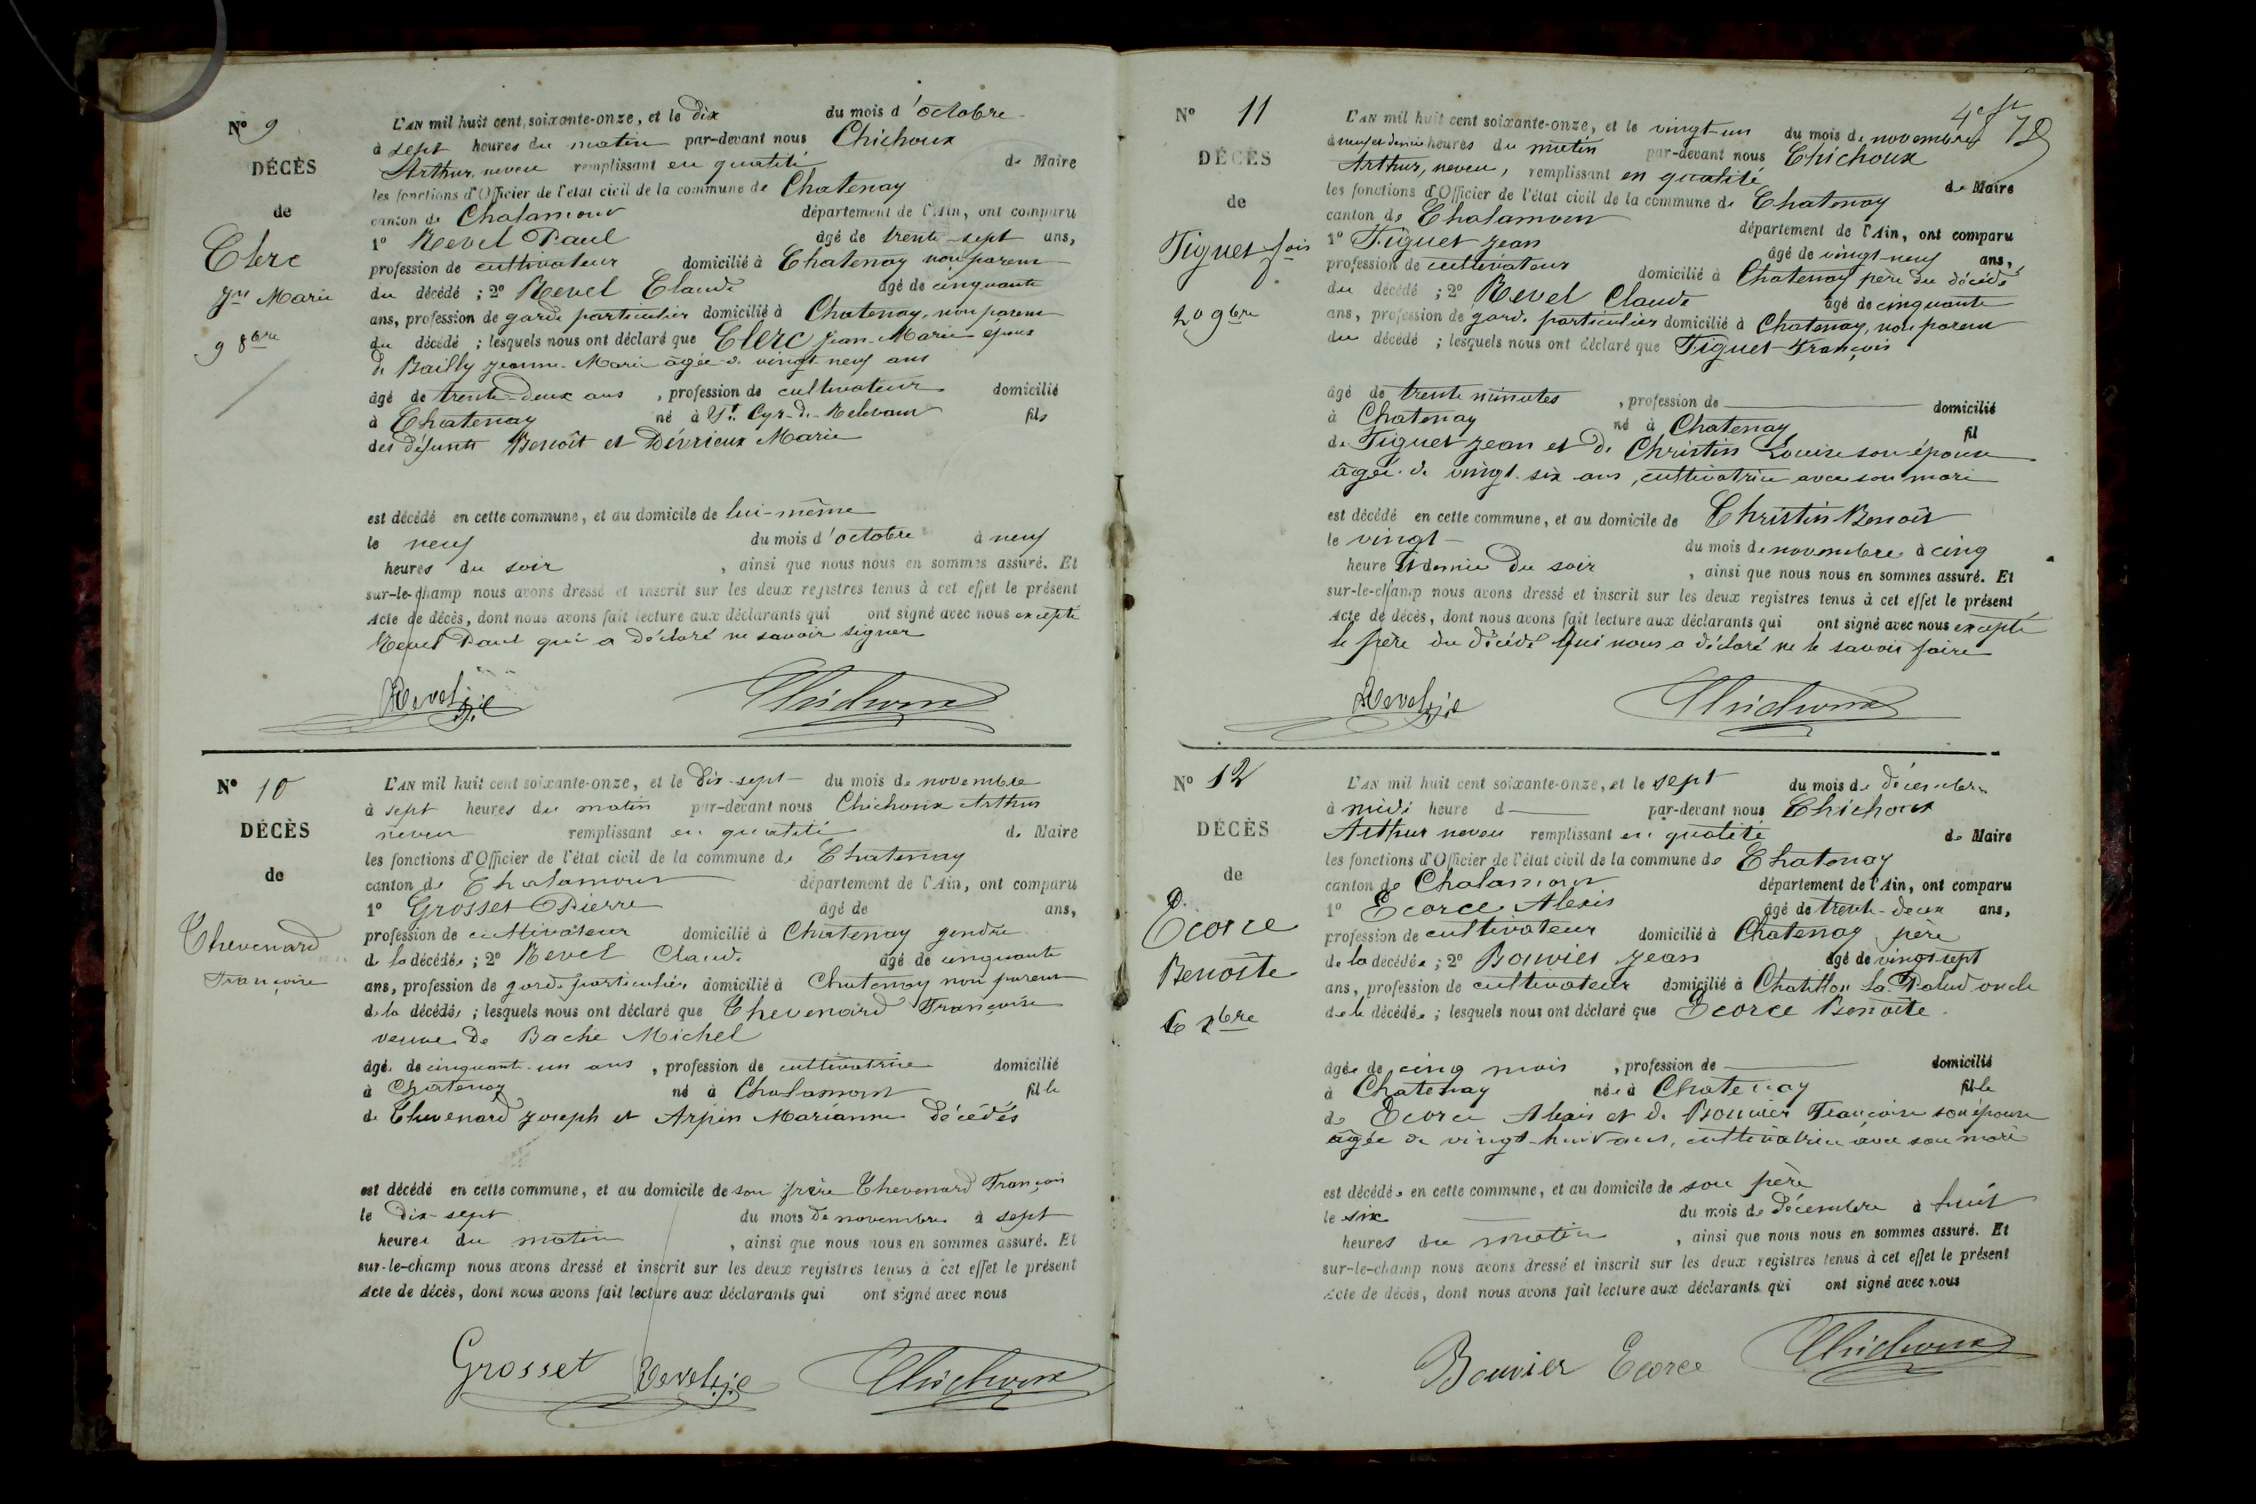 N° 9
DÉCÈS
de
Clerc
Jn Marie
9 8bre
L'AN mil huit cent soixante-onze, et le dix du mois d'octobre
à sept heures du matin par-devant nous Chichoux
Arthur, neveu remplissant en qualité de Maire
les fonctions d'Officier de l'état civil de la commune de Chatenay
canton de Chalamont département de l'Ain, ont comparu
1° Revel Paul âgé de trente-sept ans,
profession de cultivateur domicilié à Chatenay non parent
du décédé ; 2° Revel Claude âgé de cinquante
ans, profession de garde particulier domicilié à Chatenay, non parent
du décédé ; lesquels nous ont déclaré que Clerc Jean-Marie époux
de Bailly Jeanne-Marie âgée de vingt-neuf ans
âgé de trente-deux ans, profession de cultivateur domicilié
à Chatenay né à St. Cyr-de-Relevant fils
des défunts Benoît et Dévrieux Marie
est décédé en cette commune, et au domicile de lui-même
le neuf du mois d'octobre à neuf
heures du soir, ainsi que nous nous en sommes assuré. Et
sur-le-champ nous avons dressé et inscrit sur les deux registres tenus à cet effet le présent
Acte de décès, dont nous avons fait lecture aux déclarants qui ont signé avec nous excepté
Revel Paul qui a déclaré ne savoir signer
Revel Chichoux
N° 10
DÉCÈS
de
Thevenard
Françoise
L'AN mil huit cent soixante-onze, et le dix-sept du mois de novembre
à sept heures du matin par-devant nous Chichoux Arthur
neveu remplissant en qualité de Maire
les fonctions d'Officier de l'état civil de la commune de Chatenay
canton de Chalamont département de l'Ain, ont comparu
1° Grosset Pierre âgé de ans,
profession de cultivateur domicilié à Chatenay gendre
de la décédée ; 2° Revel Claude âgé de cinquante
ans, profession de garde particulier domicilié à Chatenay non parent
de la décédée ; lesquels nous ont déclaré que Thevenard Françoise
veuve de Bache Michel
âgé de cinquante-un ans, profession de cultivatrice domicilié
à Chatenay né à Chalamont fille
de Thevenard Joseph et Arpin Marianne décédés
est décédé en cette commune, et au domicile de son frère Thevenard François
le dix-sept du mois de novembre à sept
heures du matin, ainsi que nous nous en sommes assuré. Et
sur-le-champ nous avons dressé et inscrit sur les deux registres tenus à cet effet le présent
Acte de décès, dont nous avons fait lecture aux déclarants qui ont signé avec nous
Grosset Revel Chichoux
4e ft
N° 11
DÉCÈS
de
Figuet fois
20 9bre
L'AN mil huit cent soixante-onze, et le vingt-un du mois de novembre
à neuf et demie heures du matin par-devant nous Chichoux
Arthur, neveu, remplissant en qualité de Maire
les fonctions d'Officier de l'état civil de la commune de Chatenay
canton de Chalamont département de l'Ain, ont comparu
1° Figuet Jean âgé de vingt-neuf ans,
profession de cultivateur domicilié à Chatenay père du décédé
du décédé ; 2° Revel Claude âgé de cinquante
ans, profession de garde particulier domicilié à Chatenay, non parent
du décédé ; lesquels nous ont déclaré que Figuet François
âgé de trente minutes, profession de domicilié
à Chatenay né à Chatenay fil
de Figuet Jean et de Christin Louise son épouse
âgée de vingt-six ans, cultivatrice avec son mari
est décédé en cette commune, et au domicile de Christin Benoît
le vingt du mois de novembre à cinq
heure et demie du soir, ainsi que nous nous en sommes assuré. Et
sur-le-champ nous avons dressé et inscrit sur les deux registres tenus à cet effet le présent
Acte de décès, dont nous avons fait lecture aux déclarants qui ont signé avec nous excepté
le père du décédé qui nous a déclaré ne le savoir faire
Revel Chichoux
N° 12
DÉCÈS
de
Ecorce
Benoîte
6 Xbre
L'AN mil huit cent soixante-onze, et le sept du mois de décembre
à midi heure d par-devant nous Chichoux
Arthur neveu remplissant en qualité de Maire
les fonctions d'Officier de l'état civil de la commune de Chatenay
canton de Chalamont département de l'Ain, ont comparu
1° Ecorce Alexis âgé de trente-deux ans,
profession de cultivateur domicilié à Chatenay père
de la décédée ; 2° Bouvier Jean âgé de vingt-sept
ans, profession de cultivateur domicilié à Chatillon la Palud oncle
de la décédée ; lesquels nous ont déclaré que Ecorce Benoîte.
âgée de cinq mois, profession de domicilié
à Chatenay née à Chatenay fille
de Ecorce Alexis et de Bouvier Françoise son épouse
âgée de vingt-huit ans, cultivatrice avec son mari
est décédée en cette commune, et au domicile de son père
le six du mois de décembre à huit
heures du matin, ainsi que nous nous en sommes assuré. Et
sur-le-champ nous avons dressé et inscrit sur les deux registres tenus à cet effet le présent
Acte de décès, dont nous avons fait lecture aux déclarants qui ont signé avec nous
Bouvier Ecorce Chichoux